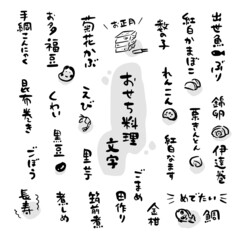 出世魚 ぶり
紅白かまぼこ
数の子
お正月
菊花かぶ
お多福豆
手綱こんにゃく
錦卵
伊達巻
栗きんとん
れんこん
紅白なます
おせち料理
文字
えび
里芋
くわい
黒豆
昆布巻き
ごぼう
めでたい
鯛
金柑
ごまめ
田作り
筑前煮
煮しめ
長寿